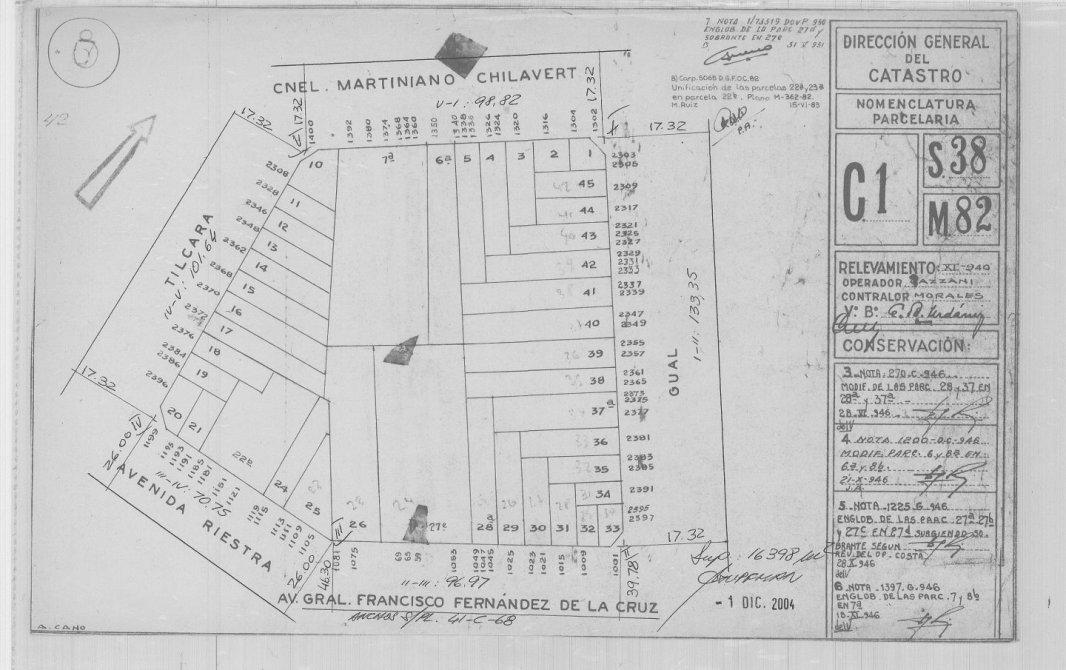 7 NOTA 1/73519 DGVP 950
ENGLOB. DE LA PARC 27d y
SOBRANTE EN 27e
31 V 951
B) Carp. 5065 D.G.F.O.C. 82
Unificación de las parcelas 22a, 23a
en parcela 22b. Plano M-362-82.
M. Ruiz 15-VI-83
DIRECCIÓN GENERAL
DEL
CATASTRO
NOMENCLATURA
PARCELARIA
C1
S.38
M82
RELEVAMIENTO: XI-940
OPERADOR
CONTRALOR MORALES
V: B:
CONSERVACIÓN:
3_NOTA: 270.C.946
MODIF. DE LAS PARC. 28 y 37 EN
28a y 37a
28.VI.946
4 NOTA 1200-D.C-946
MODIF. PARC. 6 y 8a EN
6a y 8b.
21-X-946
J.A
5_NOTA_1225.G.946
ENGLOB. DE LAS PARC. 27a 27b
y 27c EN 27d SURGIENDO SO-
BRANTE SEGUN
REV. DEL OP. COSTA
28.X.946
6_NOTA_1397.G.946
ENGLOB. DE LAS PARC. 7 y 8b
EN 7a
18-XI-946
42
CNEL. MARTINIANO CHILAVERT
V-I: 98,82
17.32
17.32
17.32
17.32
1400 1392 1380 1374 1368 1364 1360 1350 1340 1338 1336 1326 1324 1320 1316 1304 1302
10 7a 6a 5 4 3 2 1
2303
2305
45 2309
44 2317
43 2321
2325
2327
42 2329
2331
2333
41 2337
2339
40 2347
2349
39 2355
2357
38 2361
2365
37a 2373
2375
2377
36 2381
35 2383
2385
34 2391
2395
2597
GUAL
I-II: 133,35
TILCARA
IV-V: 101.64
2308
2328 11
2346 12
2348 13
2362 14
2368 15
2370 16
2372 17
2376 18
2384
2386 19
2396
20 21 22b 24 25 26 27e 28a 29 30 31 32 33
17.32
26.00 IV
1199 1195 1193 1191 1185 1181 1151 1121 1119 1115 1113 1111 1109 1105
III-IV: 70.75
AVENIDA RIESTRA
26.00
III
46.30
1081 1075 69 65 59 1053 1049 1047 1045 1025 1021 1015 1009 1001
II-III: 96.97
39.78
II
17.32
AV. GRAL. FRANCISCO FERNÁNDEZ DE LA CRUZ
ANCHOS S/PL. 41-C-68
Sup.: 16398
- 1 DIC. 2004
A. CANO